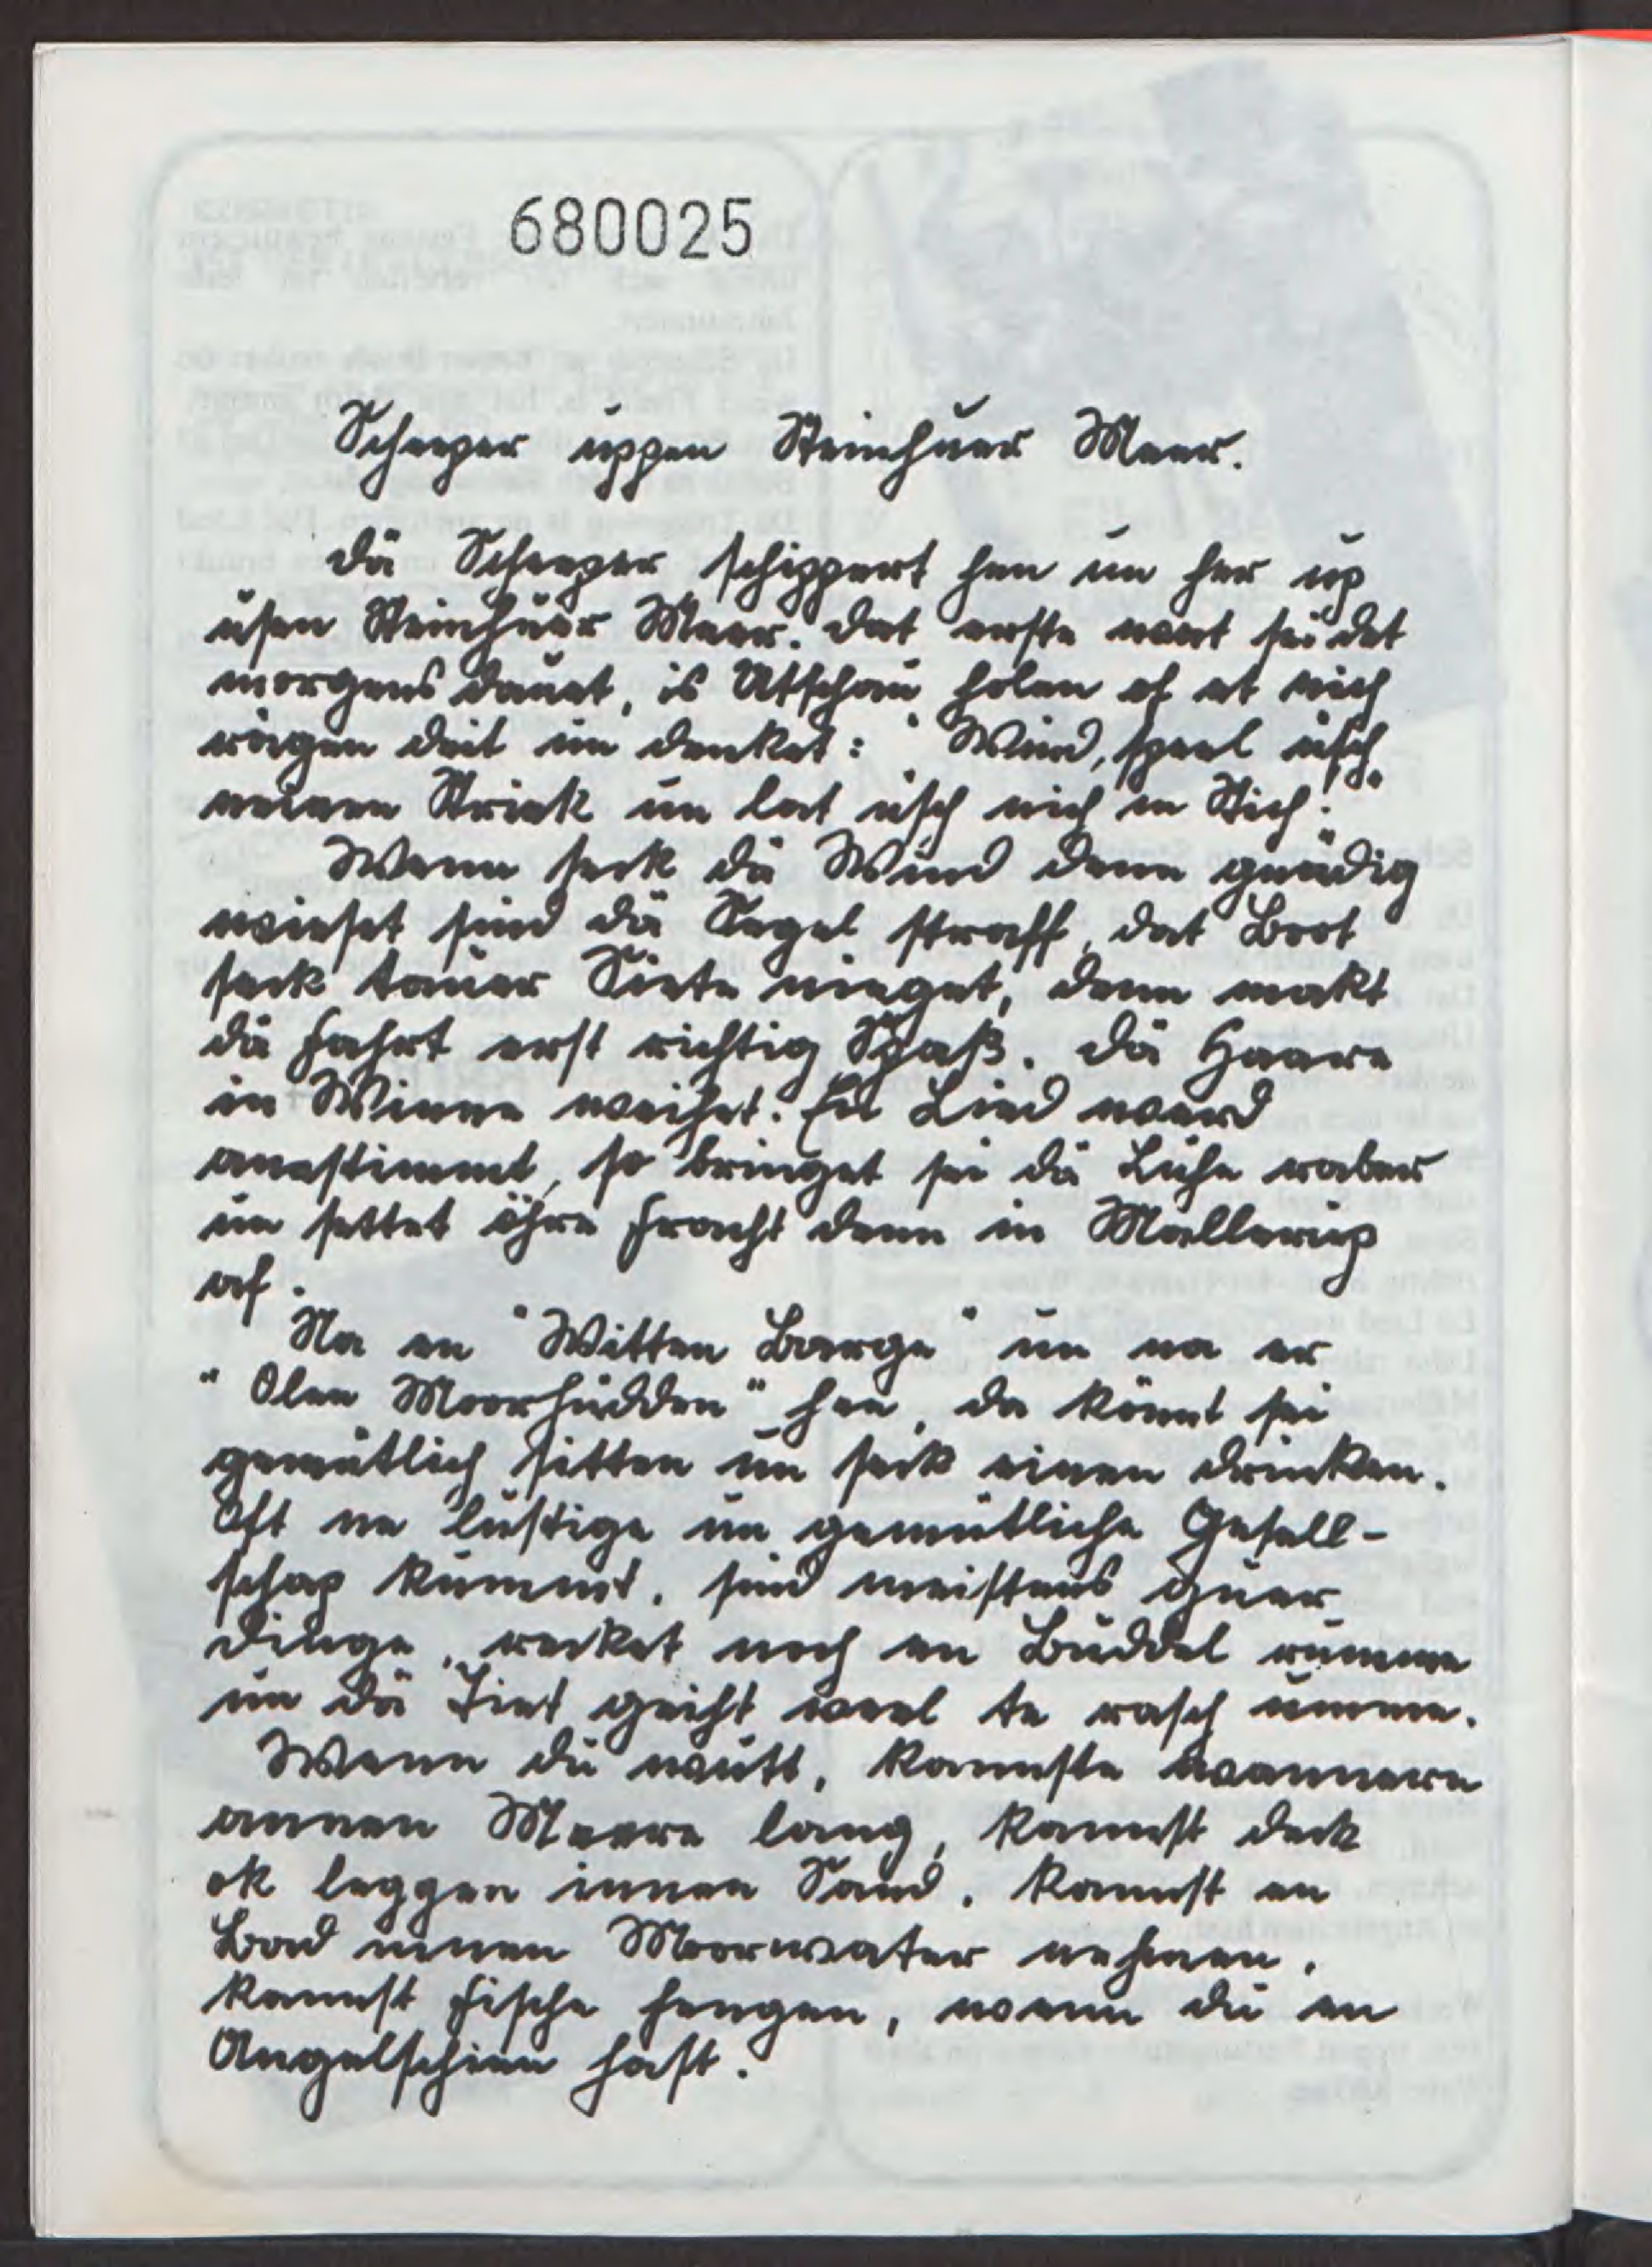 680025
Scheeper uppen Steinhuer Meer.
Dä Scheeper schippert hen un her up
usen Steinhuer Meer. Dat erste wat sei det
morgens dauet, is Utschau holen of et nich
rägen deit un denket: "Wind, speel üsch
neinen Striek un lat üsch nich in Stich!"
Wenn seck dä Wind denn gnädig
wieset sind dä Segel straff, dat Boot
seck tauer Siete nieget, denn makt
dä Fahrt erst richtig Spaß. Dä Haare
in Winne weihet. En Lied werd
anestimmt, so bringet sei dä Lühe rober
un settet öhre Fracht denn in Mallerup
af.
Na en "Witten Barge" un na er
"Olen Moorhudden" hen, da könnt sei
gemütlich sitten un seck einen drinken.
Oft ne lustige un gemütliche Gesell-
schap kummt, sind meistens guer
Dinge, recket noch en Buddel rumme
un dä Tiet geiht veel te rasch umme.
Wenn du wutt, kannste wannern
annen Meere lang, kannst deck
ok leggen innen Sand, kannst en
Bad innen Moorwater nehmen,
kannst Fische fengen, wenn du en
Angelschien hast.